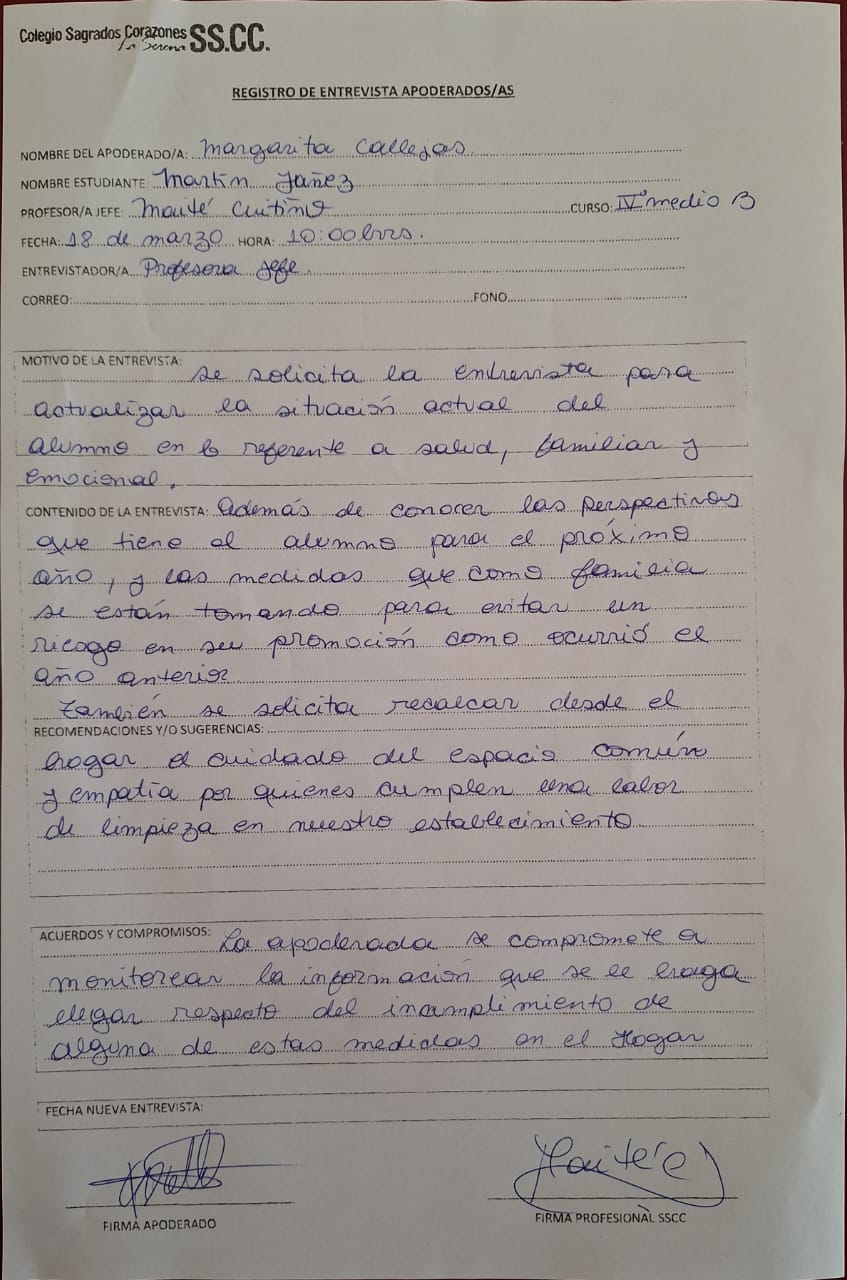 Colegio Sagrados Corazones SS.CC.
La Serena
REGISTRO DE ENTREVISTA APODERADOS/AS
NOMBRE DEL APODERADO/A: Margarita Callejas
NOMBRE ESTUDIANTE: Martin Yañez
PROFESOR/A JEFE: Maité Cuitiño CURSO: IVº medio B
FECHA: 18 de marzo HORA: 10:00 hrs.
ENTREVISTADOR/A Profesora Jefe
CORREO: FONO
MOTIVO DE LA ENTREVISTA: Se solicita la entrevista para
actualizar la situación actual del
alumno en lo referente a salud, familiar y
emocional.
CONTENIDO DE LA ENTREVISTA: Además de conocer las perspectivas
que tiene el alumno para el próximo
año, y las medidas que como familia
se están tomando para evitar un
riesgo en su promoción como ocurrió el
año anterior
También se solicita recalcar desde el
RECOMENDACIONES Y/O SUGERENCIAS:
hogar el cuidado del espacio común
y empatía por quienes cumplen una labor
de limpieza en nuestro establecimiento
ACUERDOS Y COMPROMISOS: La apoderada se compromete a
monitorear la información que se le haga
llegar respecto del incumplimiento de
alguna de estas medidas en el Hogar
FECHA NUEVA ENTREVISTA:
Maité C
FIRMA APODERADO FIRMA PROFESIONAL SSCC